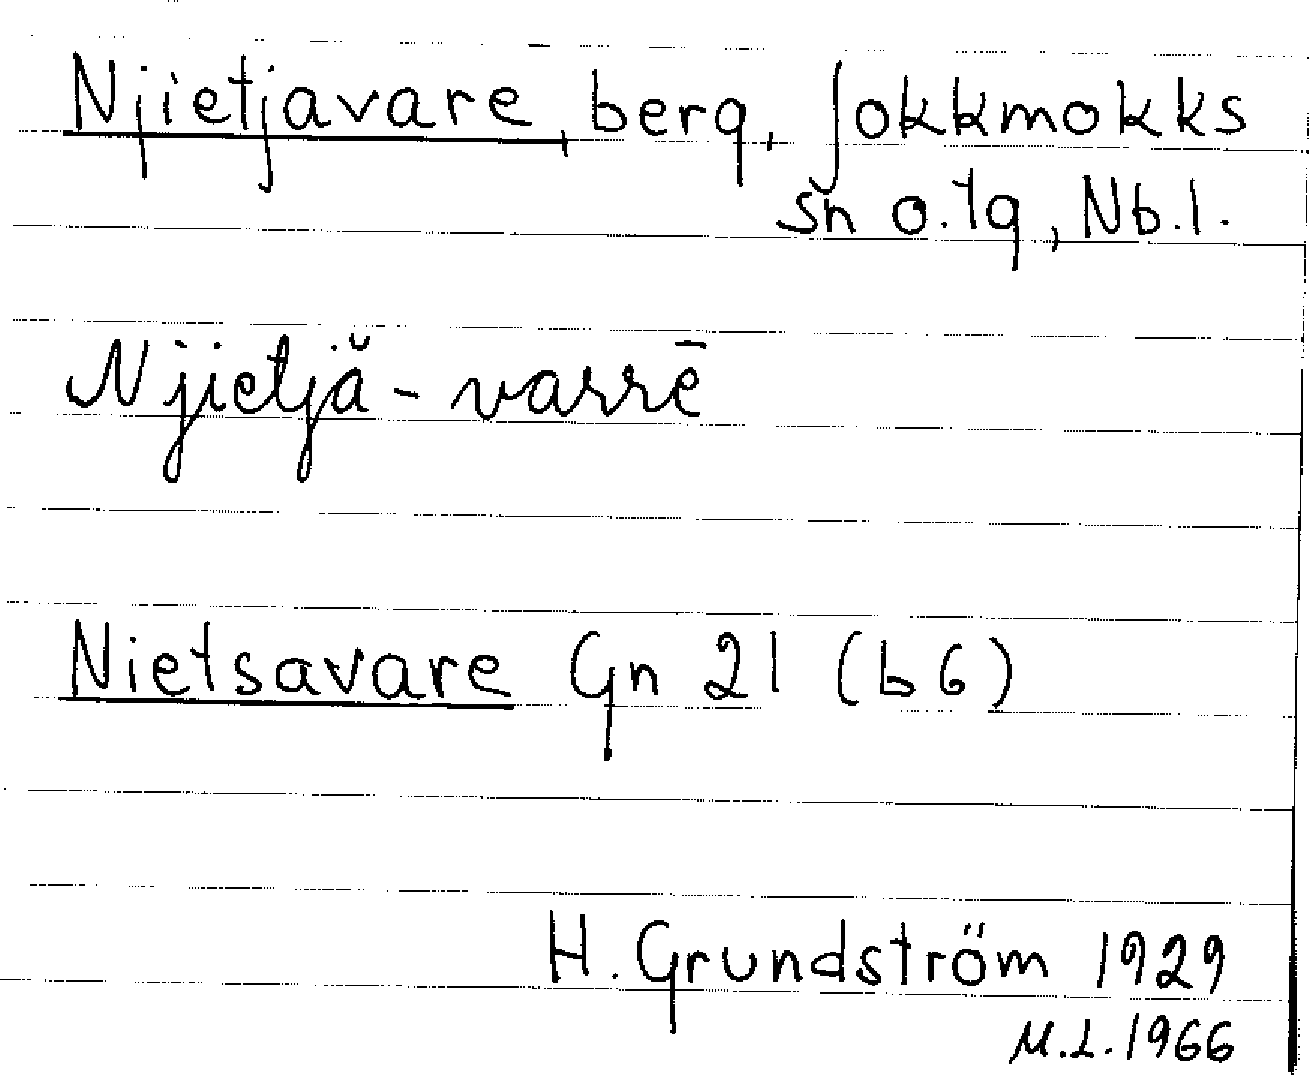 Njietjavare, berg, Jokkmokks
sn o. tg, Nb. l.
Njietjă-varrē
Nietsavare Gn 21 (b6)
H. Grundström 1929
M.L. 1966